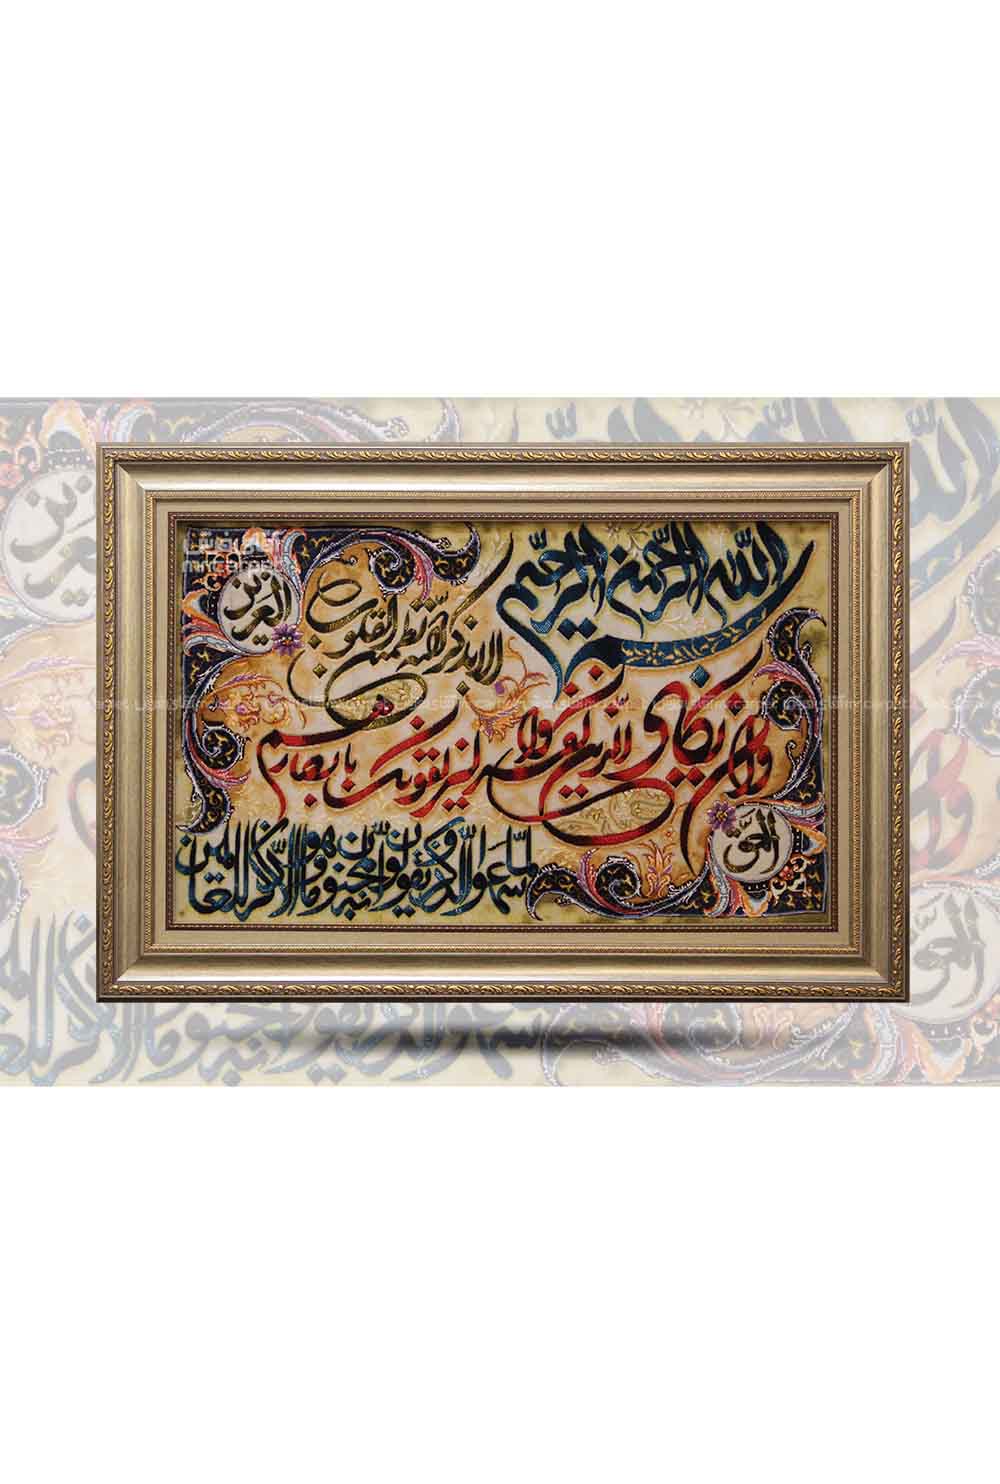 بسم الله الرحمن الرحیم
العزیز
الا بذکر الله تطمئن القلوب
وان یکاد الذین کفروا لیزلقونک بابصارهم
لما سمعوا الذکر و یقولون انه لمجنون وما هو الا ذکر للعالمین
الحق